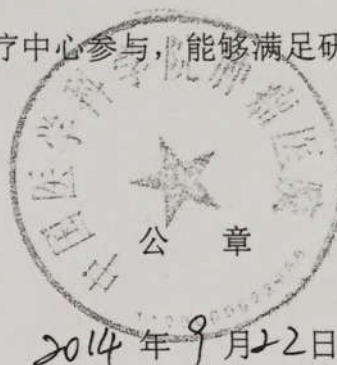 疗中心参与，能够满足研
中国医学科学院肿瘤医院
公 章
2014年9月22日